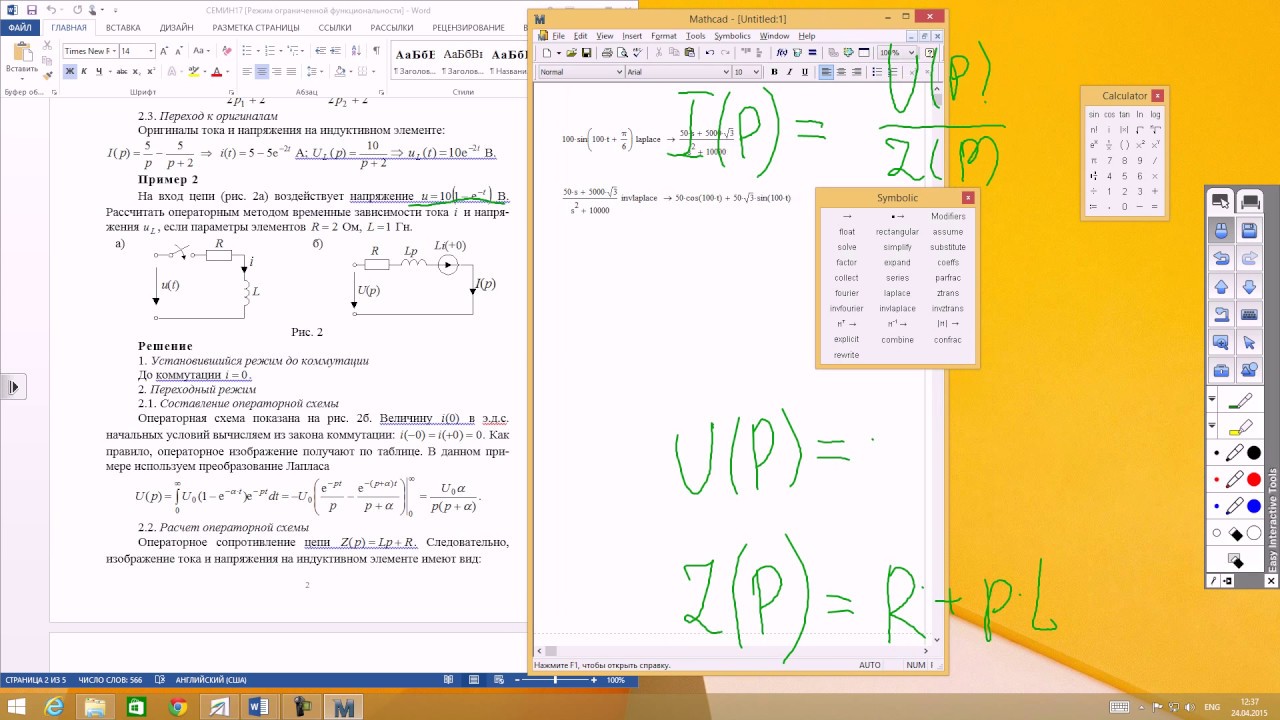 СЕМИН17 [Режим ограниченной функциональности] - Word
ФАЙЛ ГЛАВНАЯ ВСТАВКА ДИЗАЙН РАЗМЕТКА СТРАНИЦЫ ССЫЛКИ РАССЫЛКИ
Times New F 14
Вставить
Ж К Ч abc x₂ x²
АаБбЕ АаБбВг АаБбЕ
¶ Заголо... ¶ Заголо... ¶ Названи
Буфер об... Шрифт Абзац Стили
2p₁ + 2 2p₂ + 2
2.3. Переход к оригиналам
Оригиналы тока и напряжения на индуктивном элементе:
I(p) = 5/p − 5/(p+2) ⇒ i(t) = 5 − 5e^(−2t) А; U_L(p) = 10/(p+2) ⇒ u_L(t) = 10e^(−2t) В.
Пример 2
На вход цепи (рис. 2а) воздействует напряжение u = 10(1 − e^(−t)) В.
Рассчитать операторным методом временные зависимости тока i и напря-
жения u_L, если параметры элементов R = 2 Ом, L = 1 Гн.
а) R i u(t) L
б) R Lp Li(+0) U(p) I(p)
Рис. 2
Решение
1. Установившийся режим до коммутации
До коммутации i = 0.
2. Переходный режим
2.1. Составление операторной схемы
Операторная схема показана на рис. 2б. Величину i(0) в э.д.с.
начальных условий вычисляем из закона коммутации: i(−0) = i(+0) = 0. Как
правило, операторное изображение получают по таблице. В данном при-
мере используем преобразование Лапласа
U(p) = ∫₀^∞ U₀(1 − e^(−α·t))e^(−pt)dt = −U₀(e^(−pt)/p − e^(−(p+α)t)/(p+α))|₀^∞ = U₀α/(p(p+α)).
2.2. Расчет операторной схемы
Операторное сопротивление цепи Z(p) = Lp + R. Следовательно,
изображение тока и напряжения на индуктивном элементе имеют вид:
2
СТРАНИЦА 2 ИЗ 5 ЧИСЛО СЛОВ: 566 АНГЛИЙСКИЙ (США) 100%
Mathcad - [Untitled:1]
File Edit View Insert Format Tools Symbolics Window Help
100%
Normal Arial 10 B I U
I(P) = U(P)/Z(P)
100·sin(100·t + π/6) laplace → (50·s + 5000·√3)/(s² + 10000)
(50·s + 5000·√3)/(s² + 10000) invlaplace → 50·cos(100·t) + 50·√3·sin(100·t)
U(P) = ·
Z(P) = R + p·L
Нажмите F1, чтобы открыть справку. AUTO NUM
Symbolic
→ ▪→ Modifiers
float rectangular assume
solve simplify substitute
factor expand coeffs
collect series parfrac
fourier laplace ztrans
invfourier invlaplace invztrans
mᵀ → m⁻¹ → |m| →
explicit combine confrac
rewrite
Calculator
sin cos tan ln log
n! i |×|
eˣ ( ) x² xʸ
π 7 8 9 /
4 5 6 ×
÷ 1 2 3 +
:= . 0 − =
Easy Interactive Tools
ENG
12:37
24.04.2015